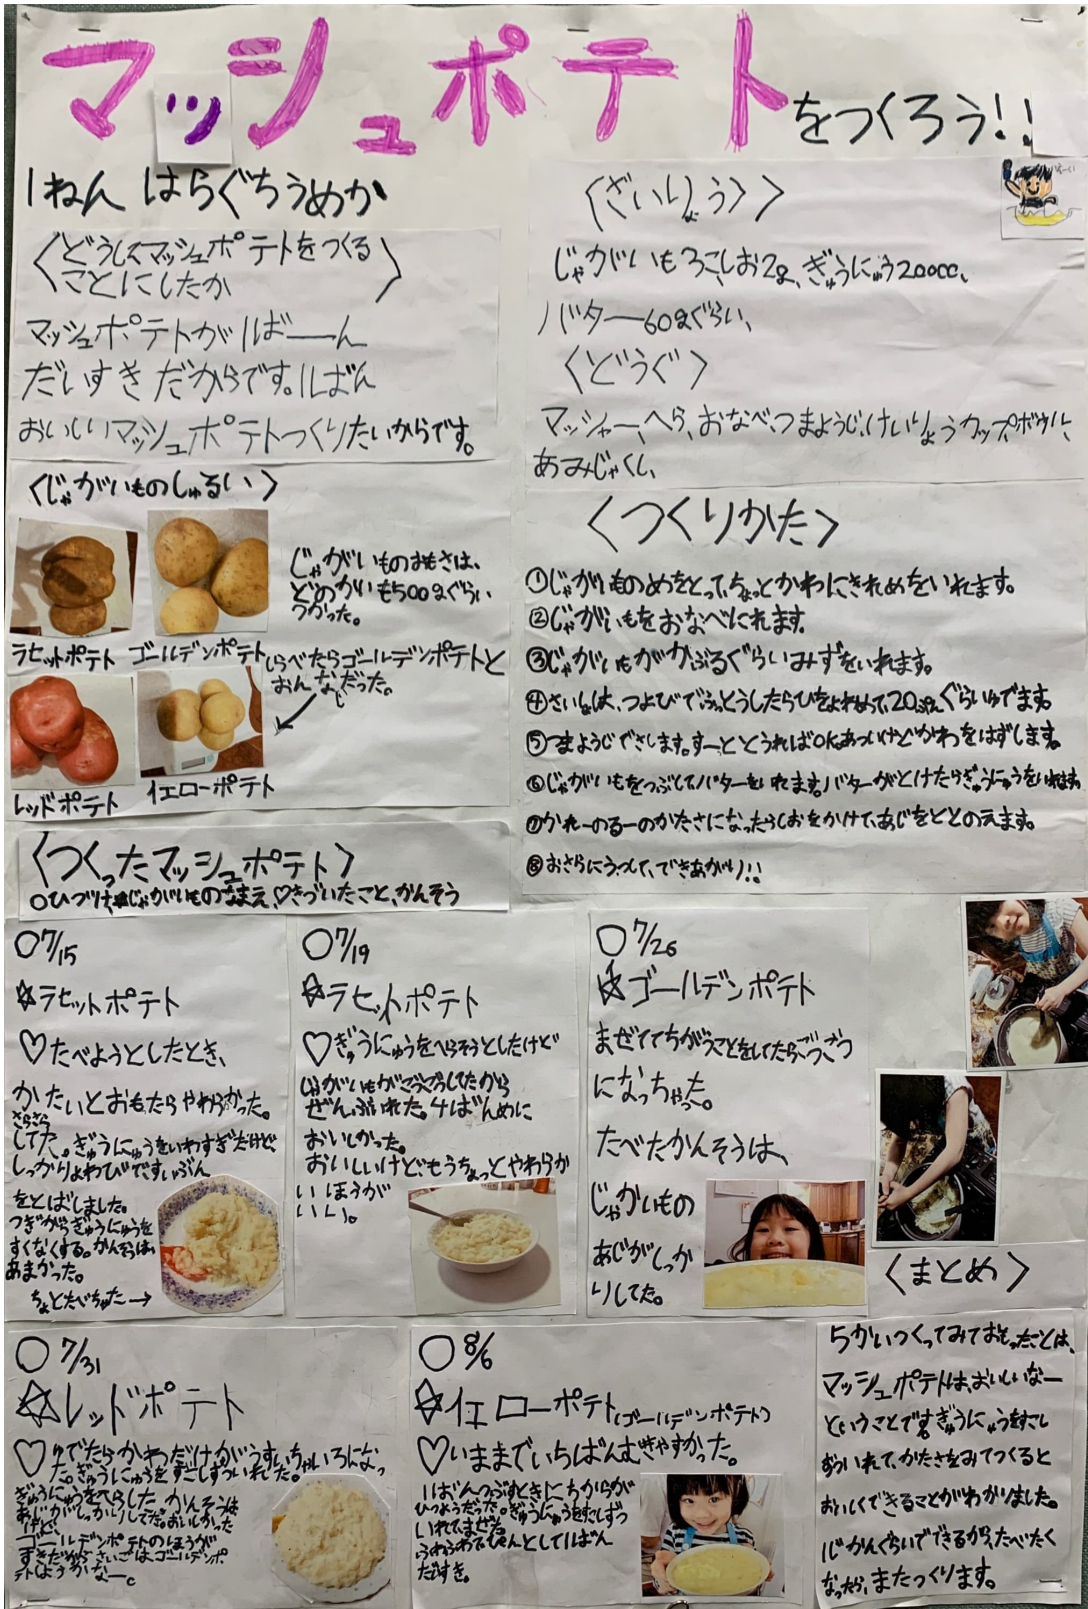 マッシュポテトをつくろう!!
1ねん はらぐちうめか
〈どうしてマッシュポテトをつくる
ことにしたか〉
マッシュポテトが1ばーーん
だいすきだからです。1ばん
おいしいマッシュポテトつくりたいからです。
〈じゃがいものしゅるい〉
じゃがいものおもさは、
どのかいも500gぐらい
つかった。
ラセットポテト
ゴールデンポテト
しらべたらゴールデンポテトと
おんなじだった。
レッドポテト
イエローポテト
〈ざいりょう〉
じゃがいも3こ、しお2g、ぎゅうにゅう200cc、
バター60gぐらい、
〈どうぐ〉
マッシャー、へら、おなべ、つまようじ、けいりょうカップ、ボウル、
あみじゃくし、
〈つくりかた〉
①じゃがいものめをとって、ちょっとかわにきれめをいれます。
②じゃがいもをおなべにれます。
③じゃがいもがかぶるぐらいみずをいれます。
④さいしょは、つよびでふっとうしたらひをよわめて、20ぷんぐらいゆでます。
⑤つまようじでさします。すーととうればOK。あついけどかわをはずします。
⑥じゃがいもをつぶして、バターをいれます。バターがとけたらぎゅうにゅうをいれます。
⑦かれーのるーのかたさになったらしおをかけて、あじをととのえます。
⑧おさらにうつして、できあがり!!
〈つくったマッシュポテト〉
○ひづけ、☆じゃがいものなまえ、♡きづいたこと、かんそう
○7/15
☆ラセットポテト
♡たべようとしたとき、
かたいとおもたらやわらかった。
さらさら
してた。ぎゅうにゅうをいれすぎだけど、
しっかりよわびですいぶん
をとばしました。
つぎからぎゅうにゅうを
すくなくする。かんそうは、
あまかった。
ちょとたべちゃた→
○7/19
☆ラセットポテト
♡ぎゅうにゅうをへらそうとしたけど
じゃがいもがごつごつしてたから
ぜんぶいれた。4ばんめに
おいしかった。
おいしいけどもうちょっとやわらか
いほうが
いい。
○7/26
☆ゴールデンポテト
まぜててちがうことをしてたら、ごつごつ
になっちゃった。
たべたかんそうは、
じゃがいもの
あじがしっか
りしてた。
○7/31
☆レッドポテト
♡ゆでたらかわだけがうすいちゃいろになっ
た。ぎゅうにゅうをすこしずついれた。
ぎゅうにゅうをへらした。かんそうは
あじがしっかりしてた。おいしかった
けど、
ゴールデンポテトのほうが
すきだからさいごは、ゴールデンポ
テトしようかなー。
○8/6
☆イエローポテト(ゴールデンポテト)
♡いままでいちばんむきやすかった。
1ばんつぶすときにちからが
ひつようだった。ぎゅうにゅうをすこしずつ
いれてまぜた。
ふわふわでぴんとして1ばん
だいすき。
〈まとめ〉
5かいつくってみておもったことは、
マッシュポテトは、おいしいなー
ということです。ぎゅうにゅうをすこし
ずついれて、かたさをみてつくると
おいしくできることがわかりました。
1じかんぐらいでできるから、たべたく
なったら、またつくります。